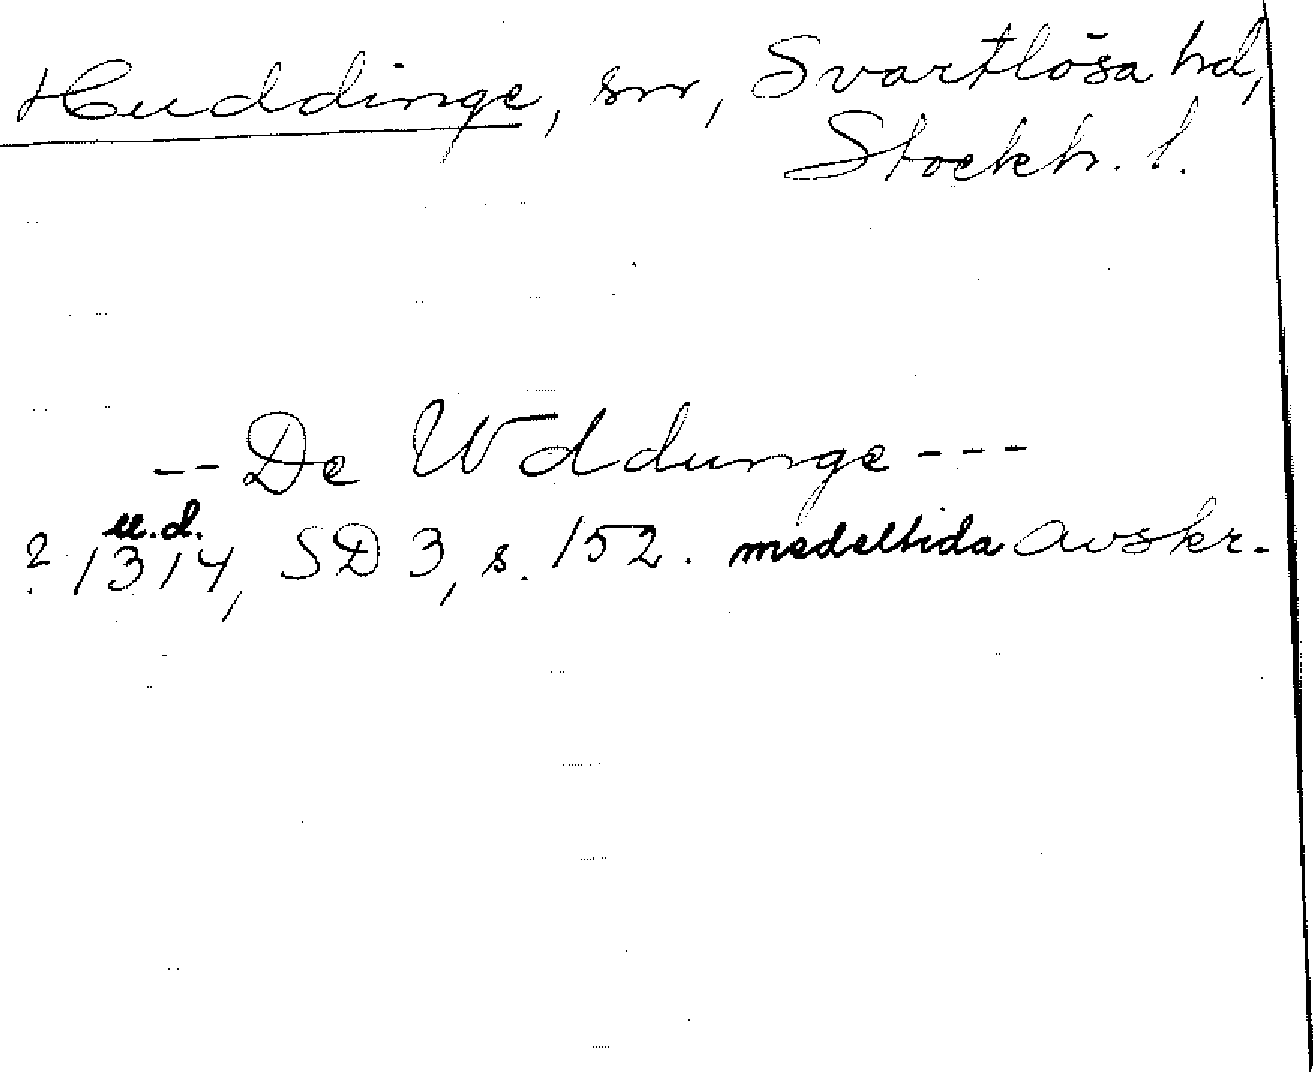 Huddinge, sn, Svartlösa hd,
Stockh. l.
-- De Wddunge ---
u.d.
? 1314, SD 3, s. 152. medeltida avskr.